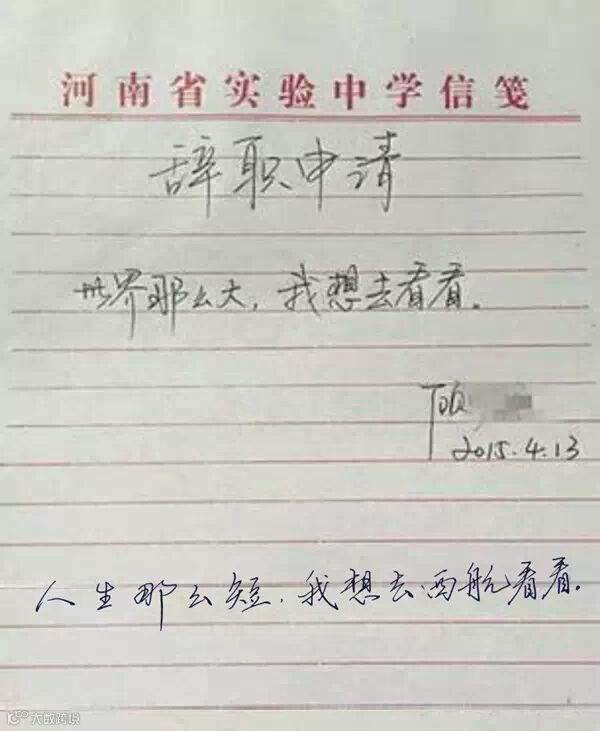 河南省实验中学信笺
辞职申请
世界那么大，我想去看看。
2015.4.13
人生那么短，我想去西航看看。
大数跨境